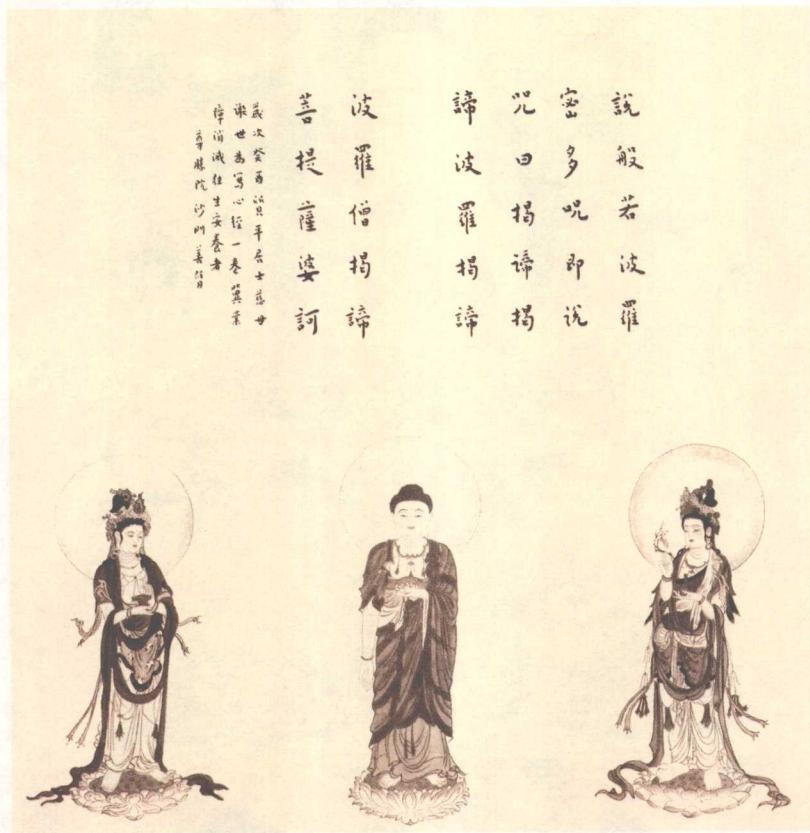 說般若波羅
密多呪即說
咒曰揭諦揭
諦波羅揭諦
波羅僧揭諦
菩提薩婆訶
歲次癸酉泊平居士慈母
謝世為寫心經一卷冀業
障消滅往生安養者
沙門善